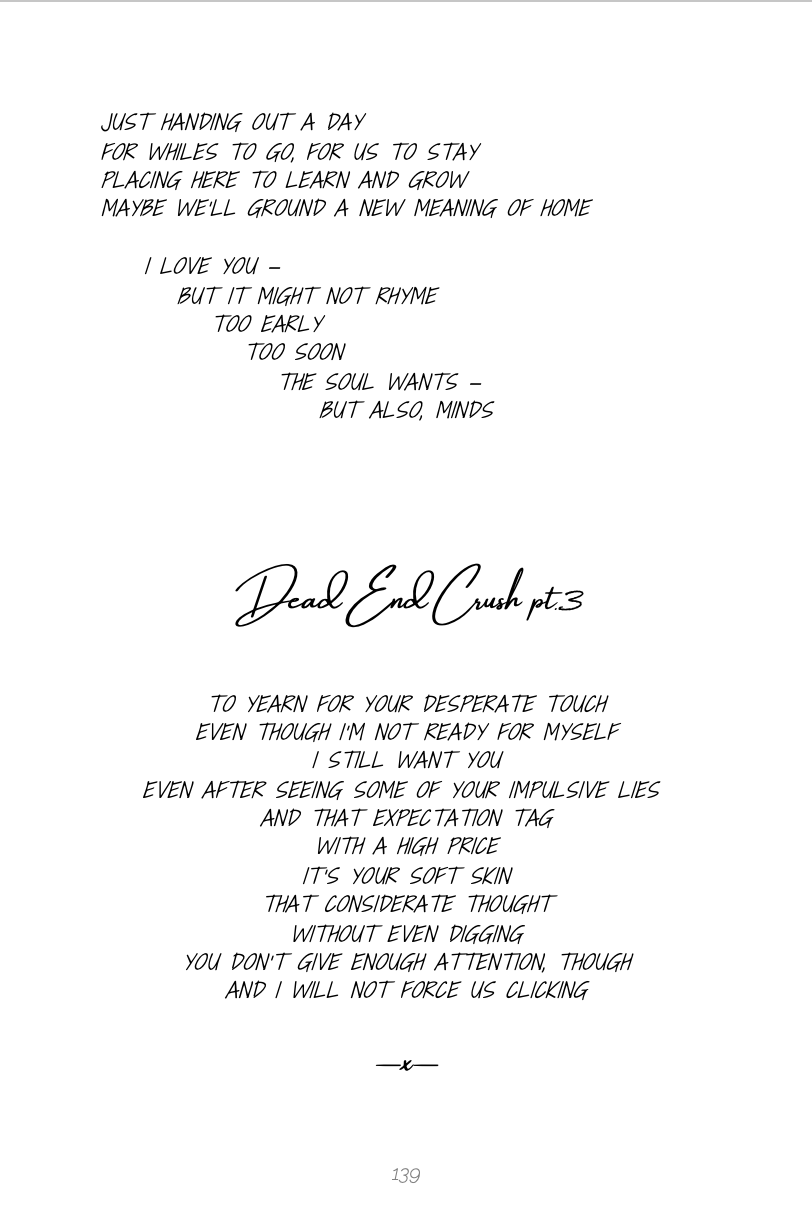 JUST HANDING OUT A DAY
FOR WHILES TO GO, FOR US TO STAY
PLACING HERE TO LEARN AND GROW
MAYBE WE'LL GROUND A NEW MEANING OF HOME
I LOVE YOU –
BUT IT MIGHT NOT RHYME
TOO EARLY
TOO SOON
THE SOUL WANTS –
BUT ALSO, MINDS
Dead End Crush pt.3
TO YEARN FOR YOUR DESPERATE TOUCH
EVEN THOUGH I'M NOT READY FOR MYSELF
I STILL WANT YOU
EVEN AFTER SEEING SOME OF YOUR IMPULSIVE LIES
AND THAT EXPECTATION TAG
WITH A HIGH PRICE
IT'S YOUR SOFT SKIN
THAT CONSIDERATE THOUGHT
WITHOUT EVEN DIGGING
YOU DON'T GIVE ENOUGH ATTENTION, THOUGH
AND I WILL NOT FORCE US CLICKING
—x—
139